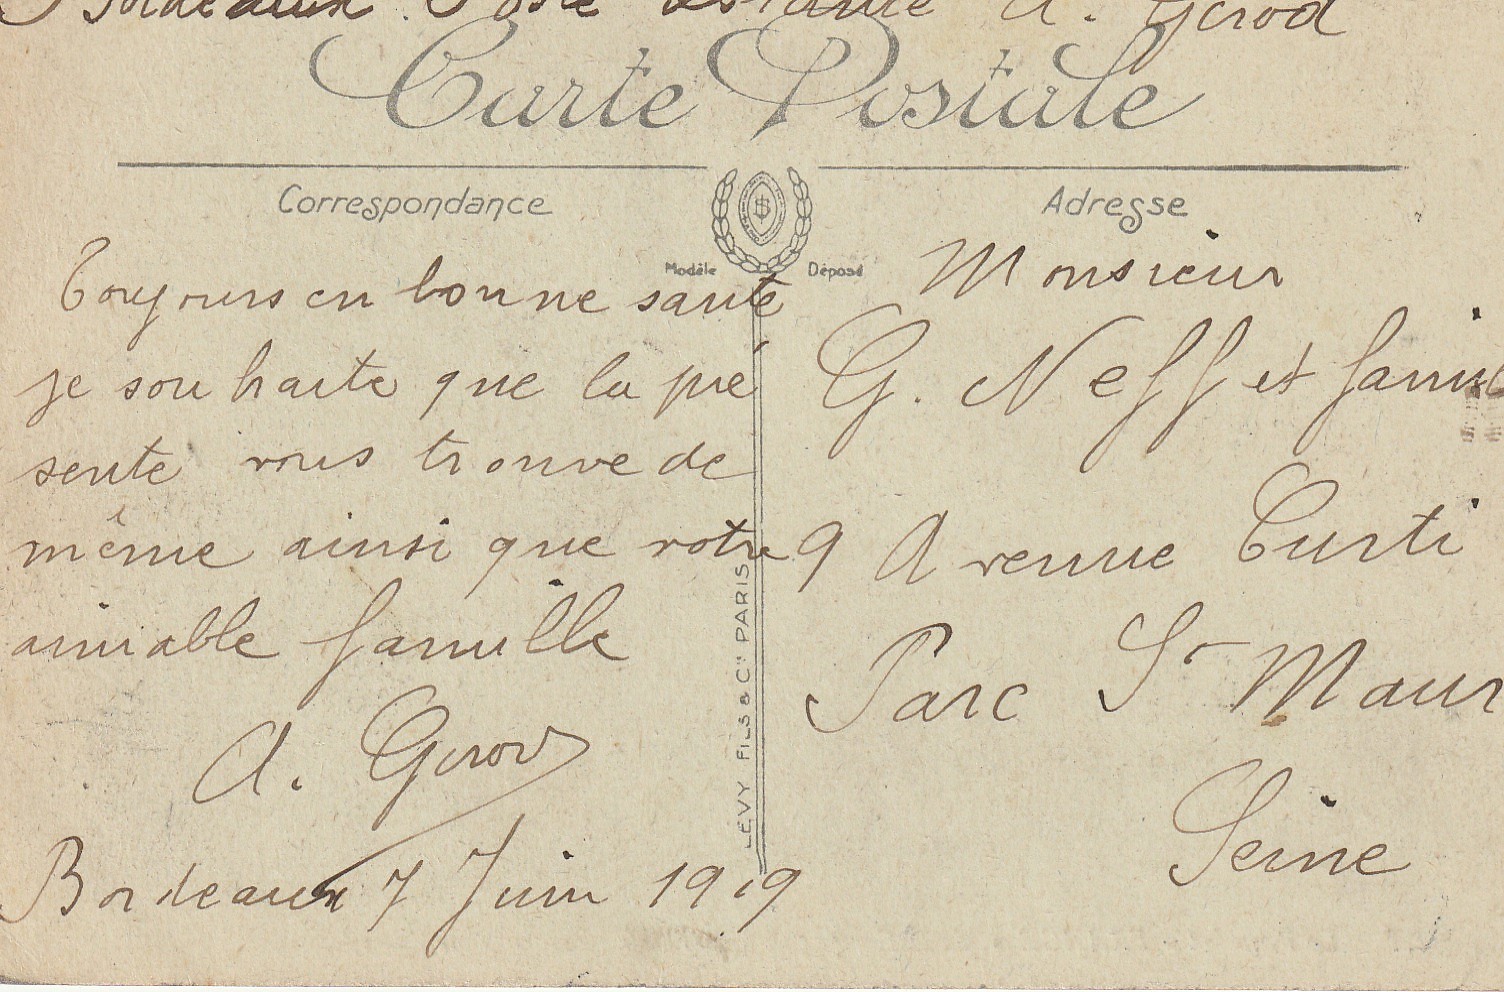 Bordeaux Poste restante A. Gerod
Carte Postale
Correspondance
Adresse
Modèle Déposé
Toujours en bonne santé
je souhaite que la pré
sente vous trouve de
même ainsi que votre
aimable famille
A. Gerod
Bordeaux 7 Juin 1919
LÉVY FILS & Cie PARIS
Monsieur
G. Neff et famil
9 Avenue Curti
Parc St Maur
Seine